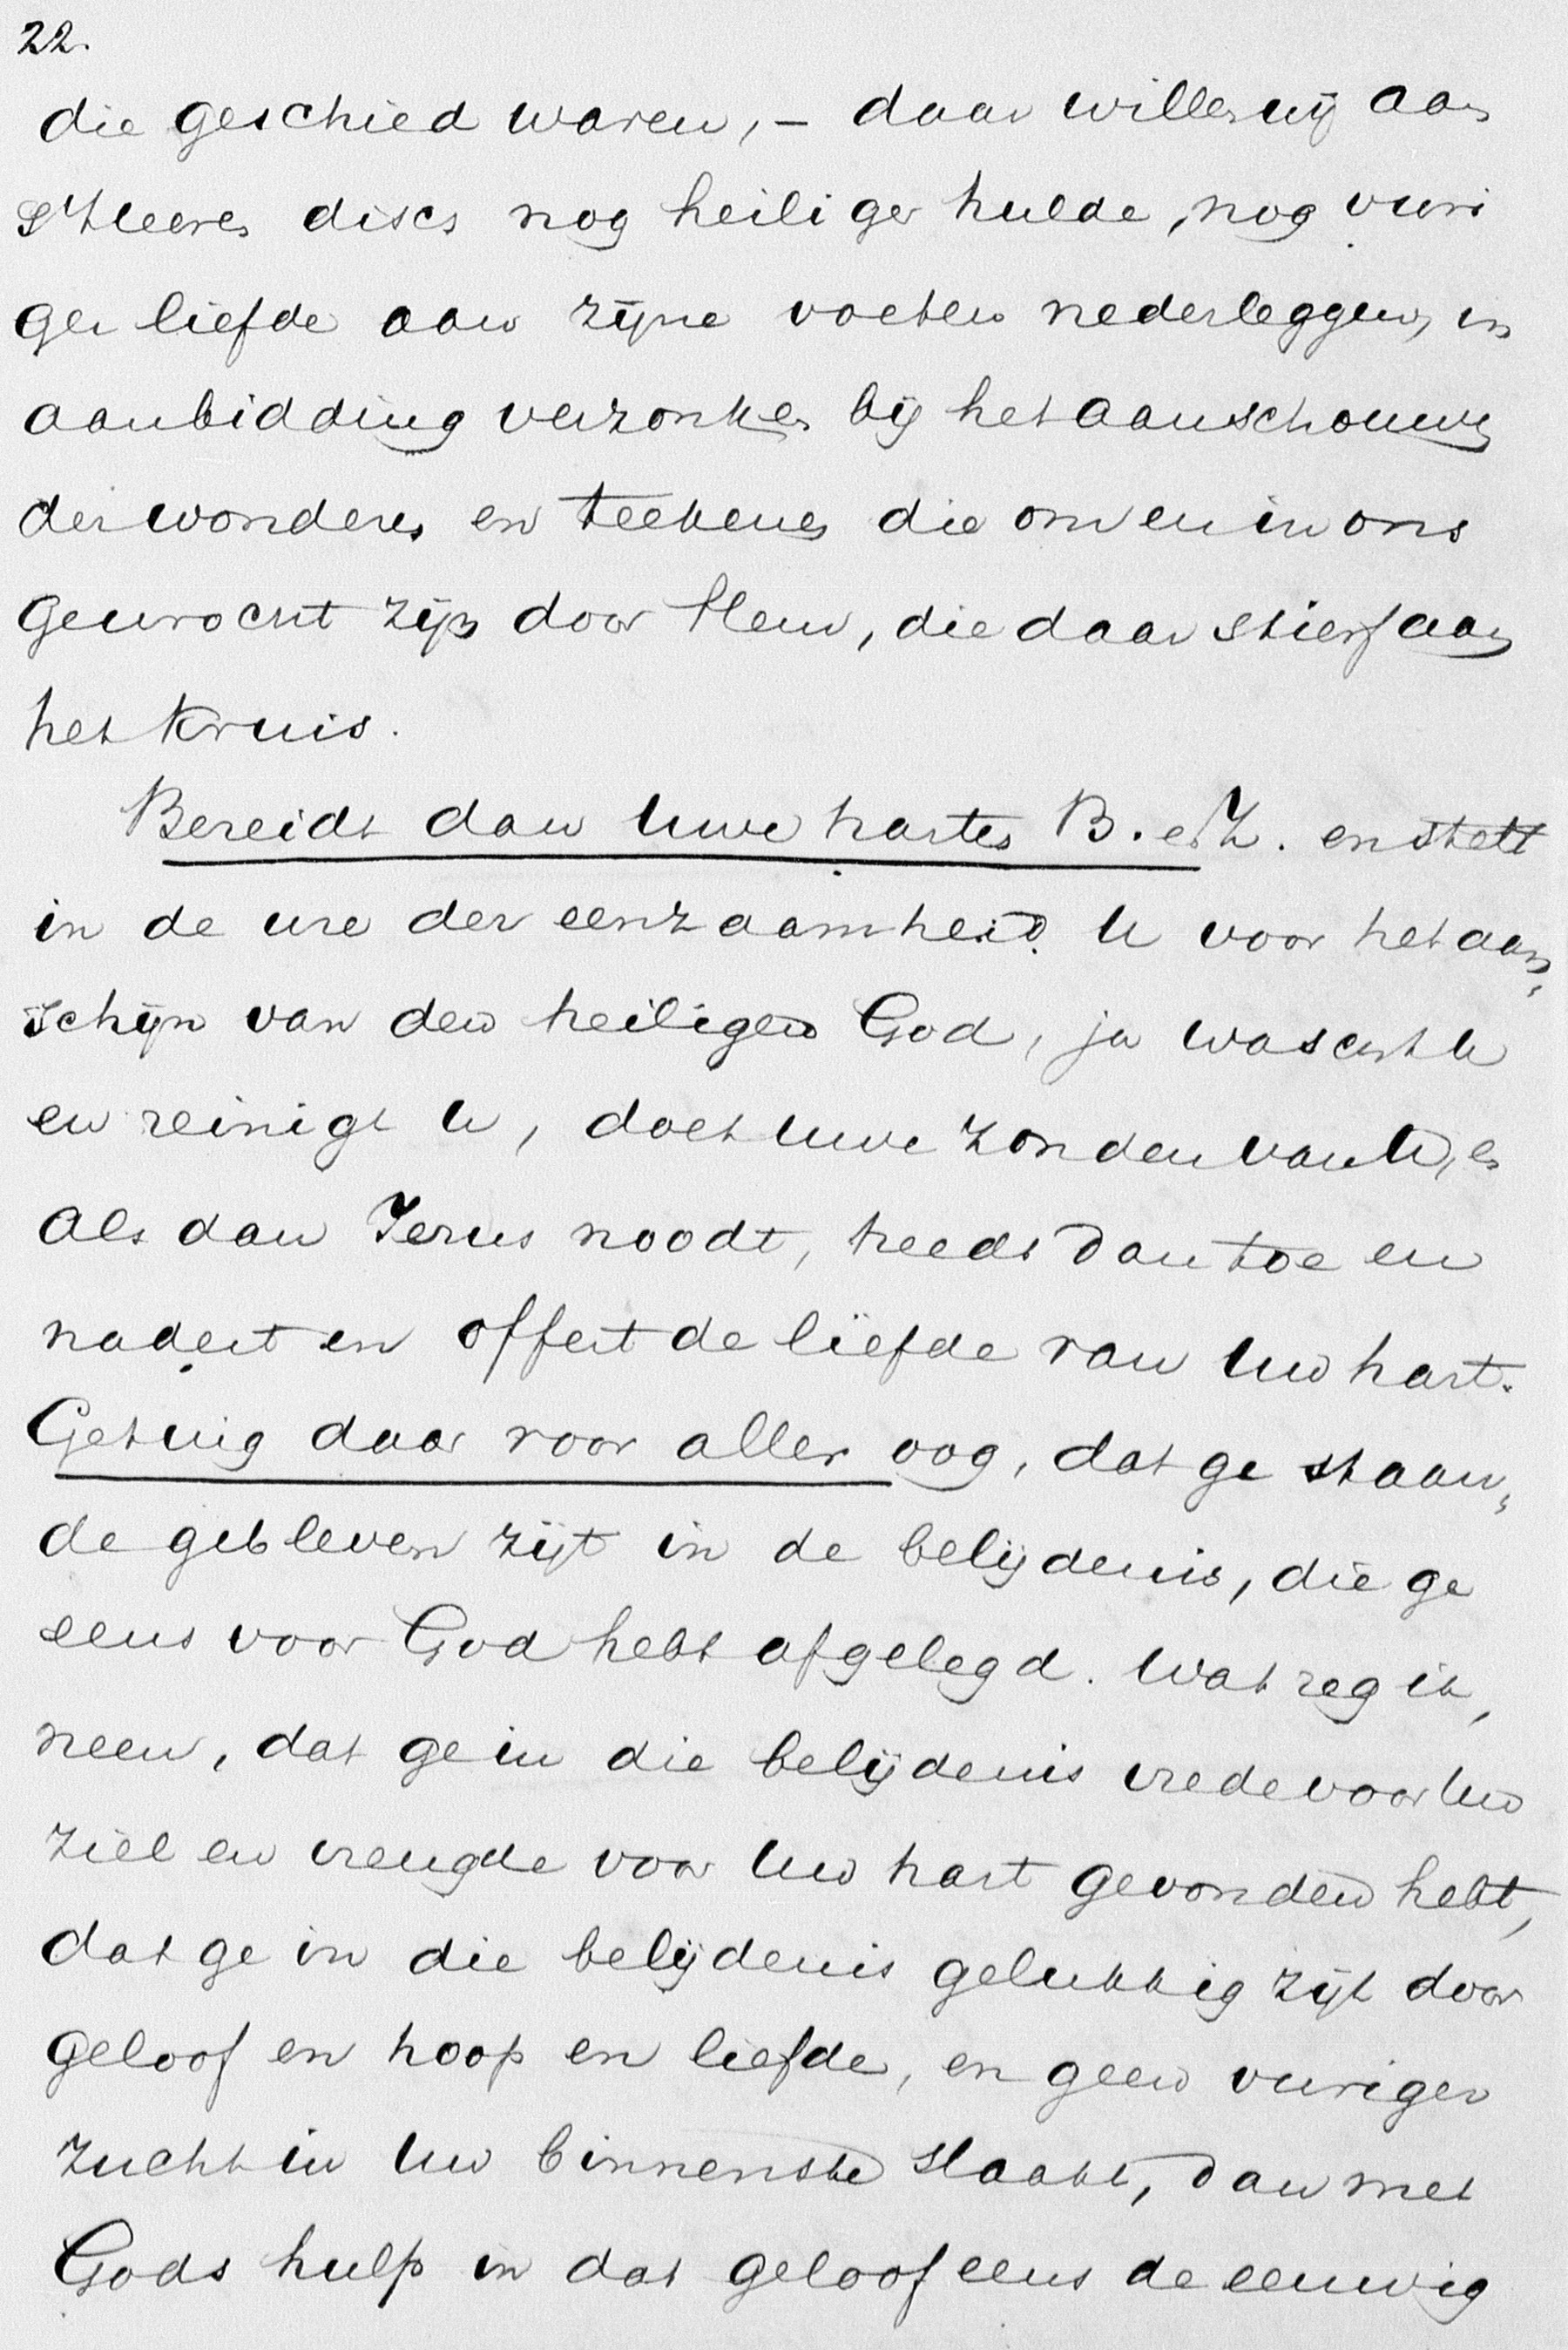 22.
die geschied waren, – daar willen wij aan
s'Heeren disch nog heiliger hulde, nog vuri
ger liefde aan zijne voeten nederleggen, in
aanbidding verzonken bij het aanschouwen
der wonderen en teekenen die om en in ons
gewrocht zijn door Hem, die daar stierf aan
het kruis.
Bereidt dan Uwe harten B. en Z. en stelt
in de ure der eenzaamheid U voor het aan„
schijn van den heiligen God, ja wascht U
en reinigt U, doet Uwe zonden van U, en
als dan Jezus noodt, treedt dan toe en
nadert en offert de liefde van Uw hart.
Getuig daar voor aller oog, dat ge staan„
de gebleven zijt in de belijdenis, die ge
eens voor God hebt afgelegd. Wat zeg ik,
neen, dat ge in die belijdenis vrede voor Uw
ziel en vreugde voor Uw hart gevonden hebt,
dat ge in die belijdenis gelukkig zijt door
geloof en hoop en liefde, en geen vuriger
zucht in Uw binnenste slaakt, dan met
Gods hulp in dat geloof eens de eeuwig